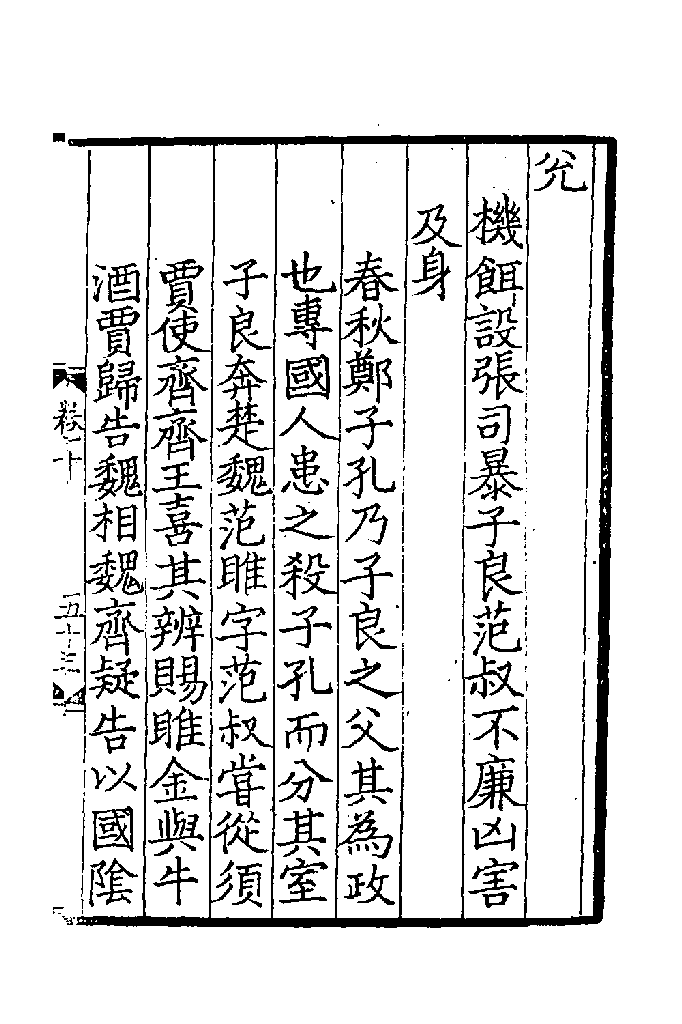 兊
機餌設張司暴子良范叔不廉凶害
及身
春秋鄭子孔乃子良之父其為政
也專國人患之殺子孔而分其室
子良奔楚魏范雎字范叔甞從須
賈使齊齊王喜其辨賜雎金與牛
酒賈歸告魏相魏齊疑告以國陰
卷十
五十三